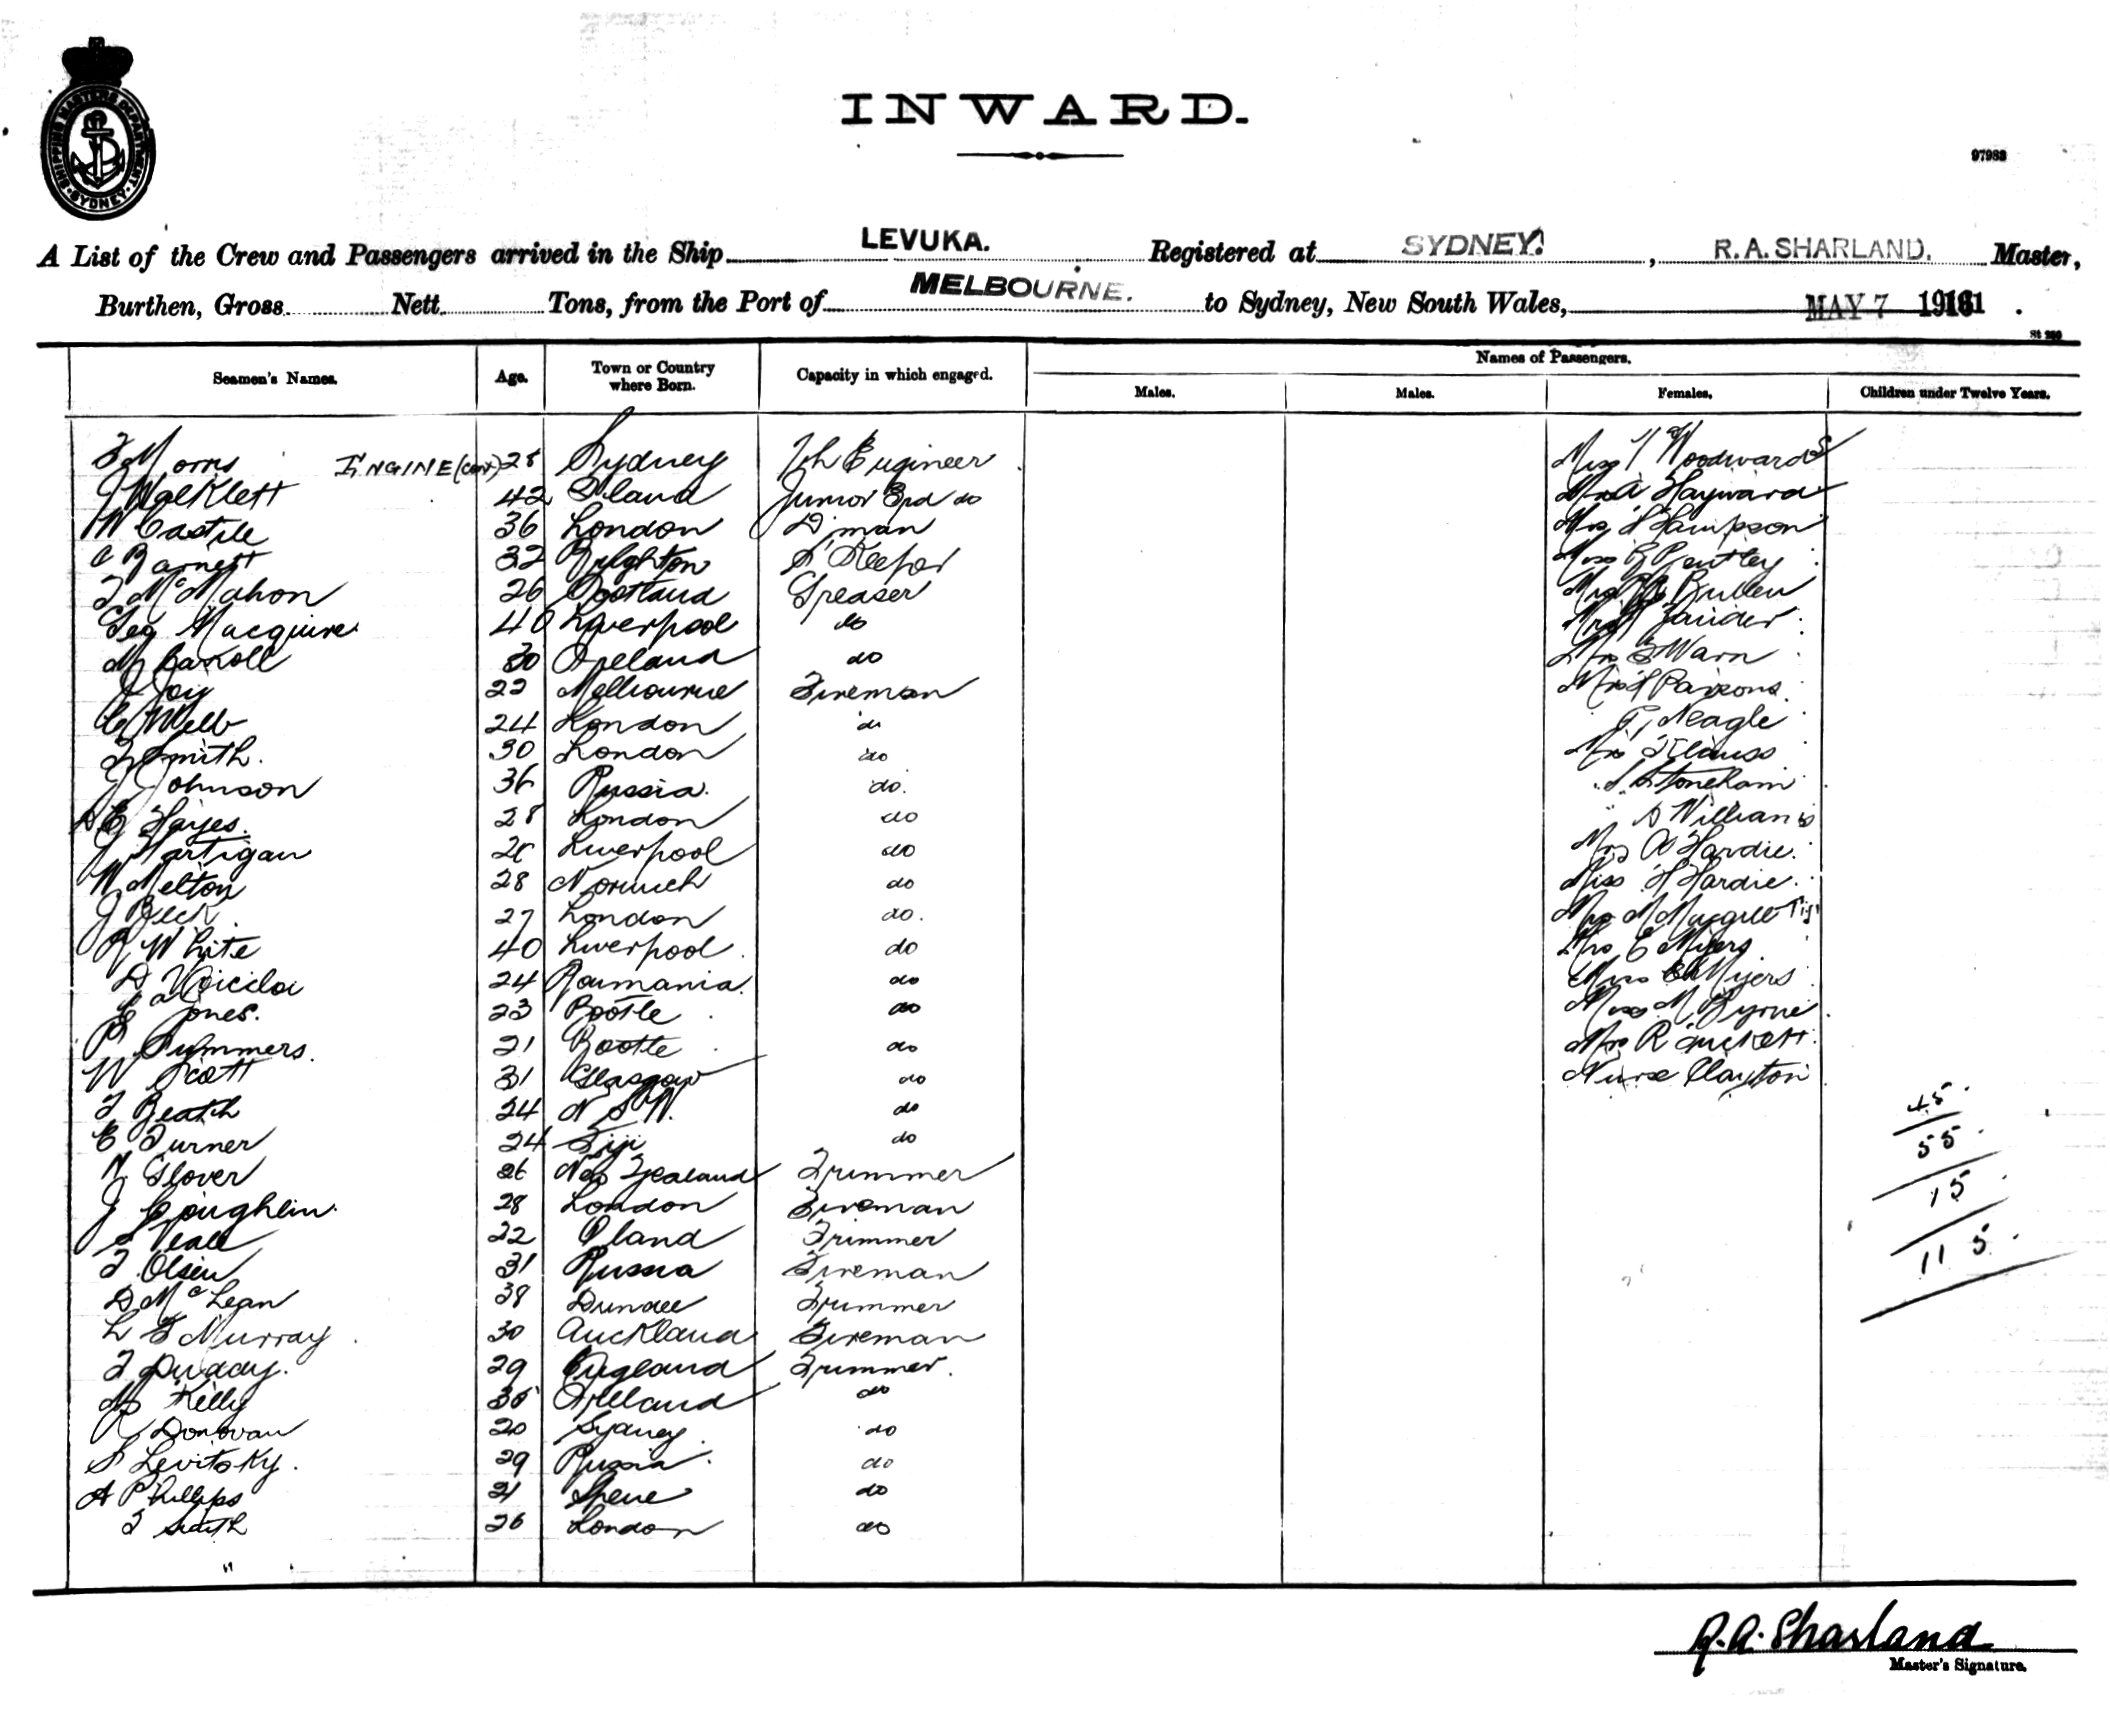 SHIPPING MASTERS DEPARTMENT SYDNEY
INWARD.
97983
A List of the Crew and Passengers arrived in the Ship LEVUKA. Registered at SYDNEY. , R. A. SHARLAND. Master,
Burthen, Gross Nett Tons, from the Port of MELBOURNE. to Sydney, New South Wales, MAY 7 191
St 280
Seamen's Names. Age. Town or Country where Born. Capacity in which engaged. Names of Passengers.
Males. Males. Females. Children under Twelve Years.
F Morris ENGINE (cont) 28 Sydney 7th Engineer Miss Woodward
J Walklett 42 Junior 3rd do Mrs A Hayward
W Castile 36 London D'man Mrs H Hampson
C Barnett 32 Brighton S' Keeper Miss Bentley
T McMahon 26 Scotland Greaser Mrs Bullen
Geo Macquire 40 Liverpool do
M Caroll 30 Ireland do Mrs S Warn
J Joy 22 Melbourne Fireman Mrs Parsons.
C Webb 24 London do Neagle
F Smith. 30 London do Mrs Clauss
J Johnson 36 Russia. do. Stoneham
D E Hayes. 28 London do " Williams
J Hartigan Liverpool do Mrs A Hardie.
W Melton 28 Norwich do Miss H Hardie.
J Beck. 27 London do. Mrs M
R White 40 Liverpool. do Mrs E Myers
D Voicila 24 Roumania. do Miss Myers
Jones. 23 Bootle do Miss M Byrne
P Summers. 21 Bootle do Mrs R
W Scott 31 Glasgow do Nurse Clayton
T Beath 24 N S W. do 45.
E Turner 24 Fiji do 55.
N Glover 26 New Zealand Trimmer 15.
J Coughlin. 28 London Fireman
S Neall 22 Trimmer 115.
T Olsen 31 Russia Fireman
D McLean 38 Dundee Trimmer
L F Murray 30 Auckland Fireman
T Duddy. 29 England Trimmer.
M Kelly 35 Ireland do
R Donovan 20 Sydney do
S Levitsky. 29 Russia. do
A Phillips 21 do
T Smith 26 London do
R. A. Sharland
Master's Signature.